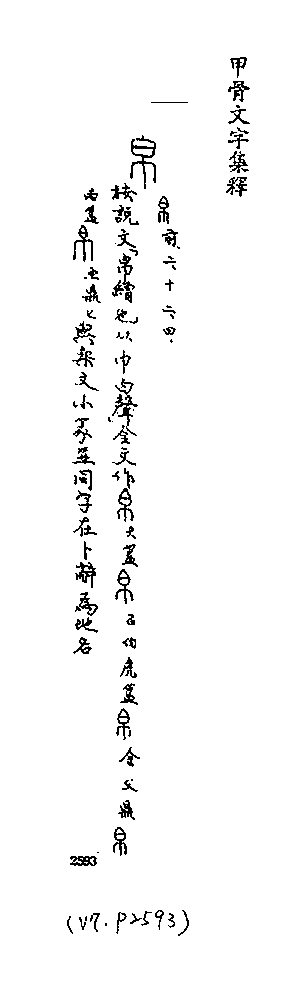 甲骨文字集釋
帛
帛 前 六 十 六 四
按說文「帛繒也从巾白聲」金文作帛大簋帛召伯虎簋帛舍父鼎帛
兩簋帛 鼎 與契文小篆並同字在卜辭為地名
2593
(V7.P2593)